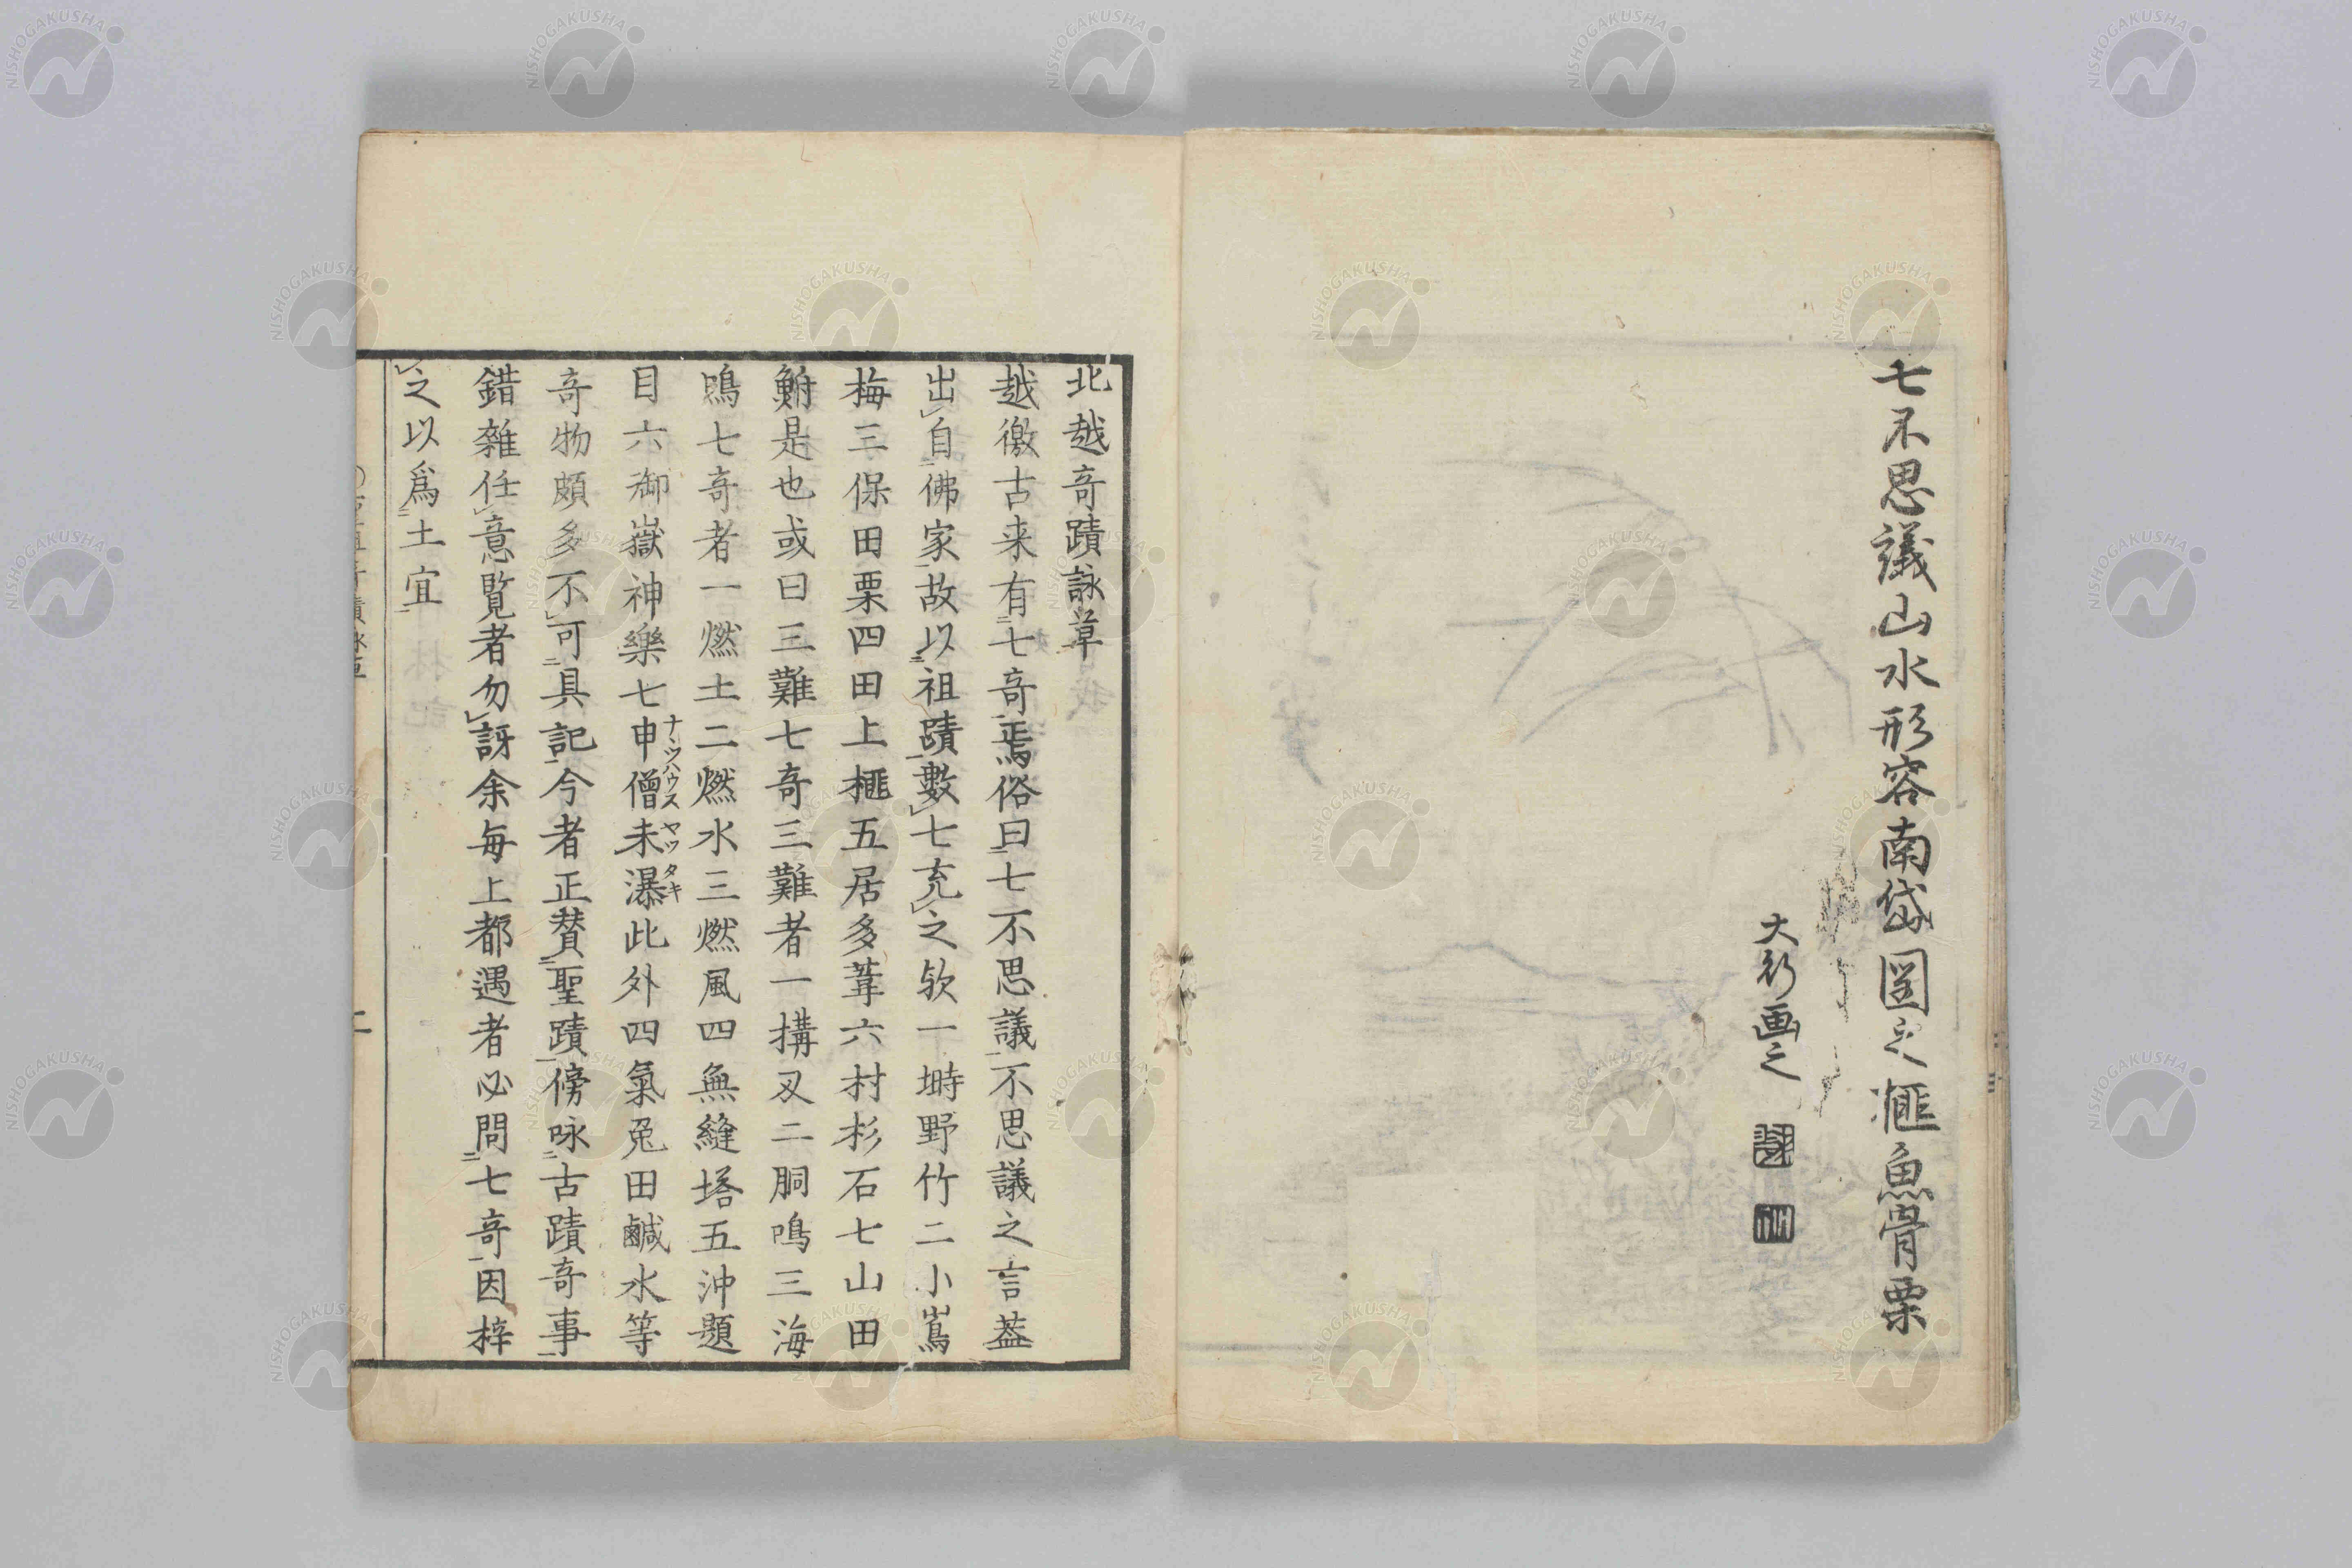 七不思議山水形容南岱圖之榧魚骨栗
大行画之
北越奇蹟詠草
越徼古来有七奇焉俗曰七不思議不思議之言葢
出自佛家故以祖蹟數七充之欤一塒野竹二小嶌
梅三保田栗四田上榧五居多葦六村杉石七山田
鮒是也或曰三難七奇三難者一搆叉二胴鳴三海
鳴七奇者一燃土二燃水三燃風四無縫塔五沖題
目六御嶽神樂七申僧未瀑此外四氣兎田鹹水等
ナヽツハウス ヤツタキ
奇物頗多不可具記今者正賛聖蹟傍咏古蹟奇事
錯雑任意覧者勿訝余毎上都遇者必問七奇因梓
之以爲土宜
NISHOGAKUSHA